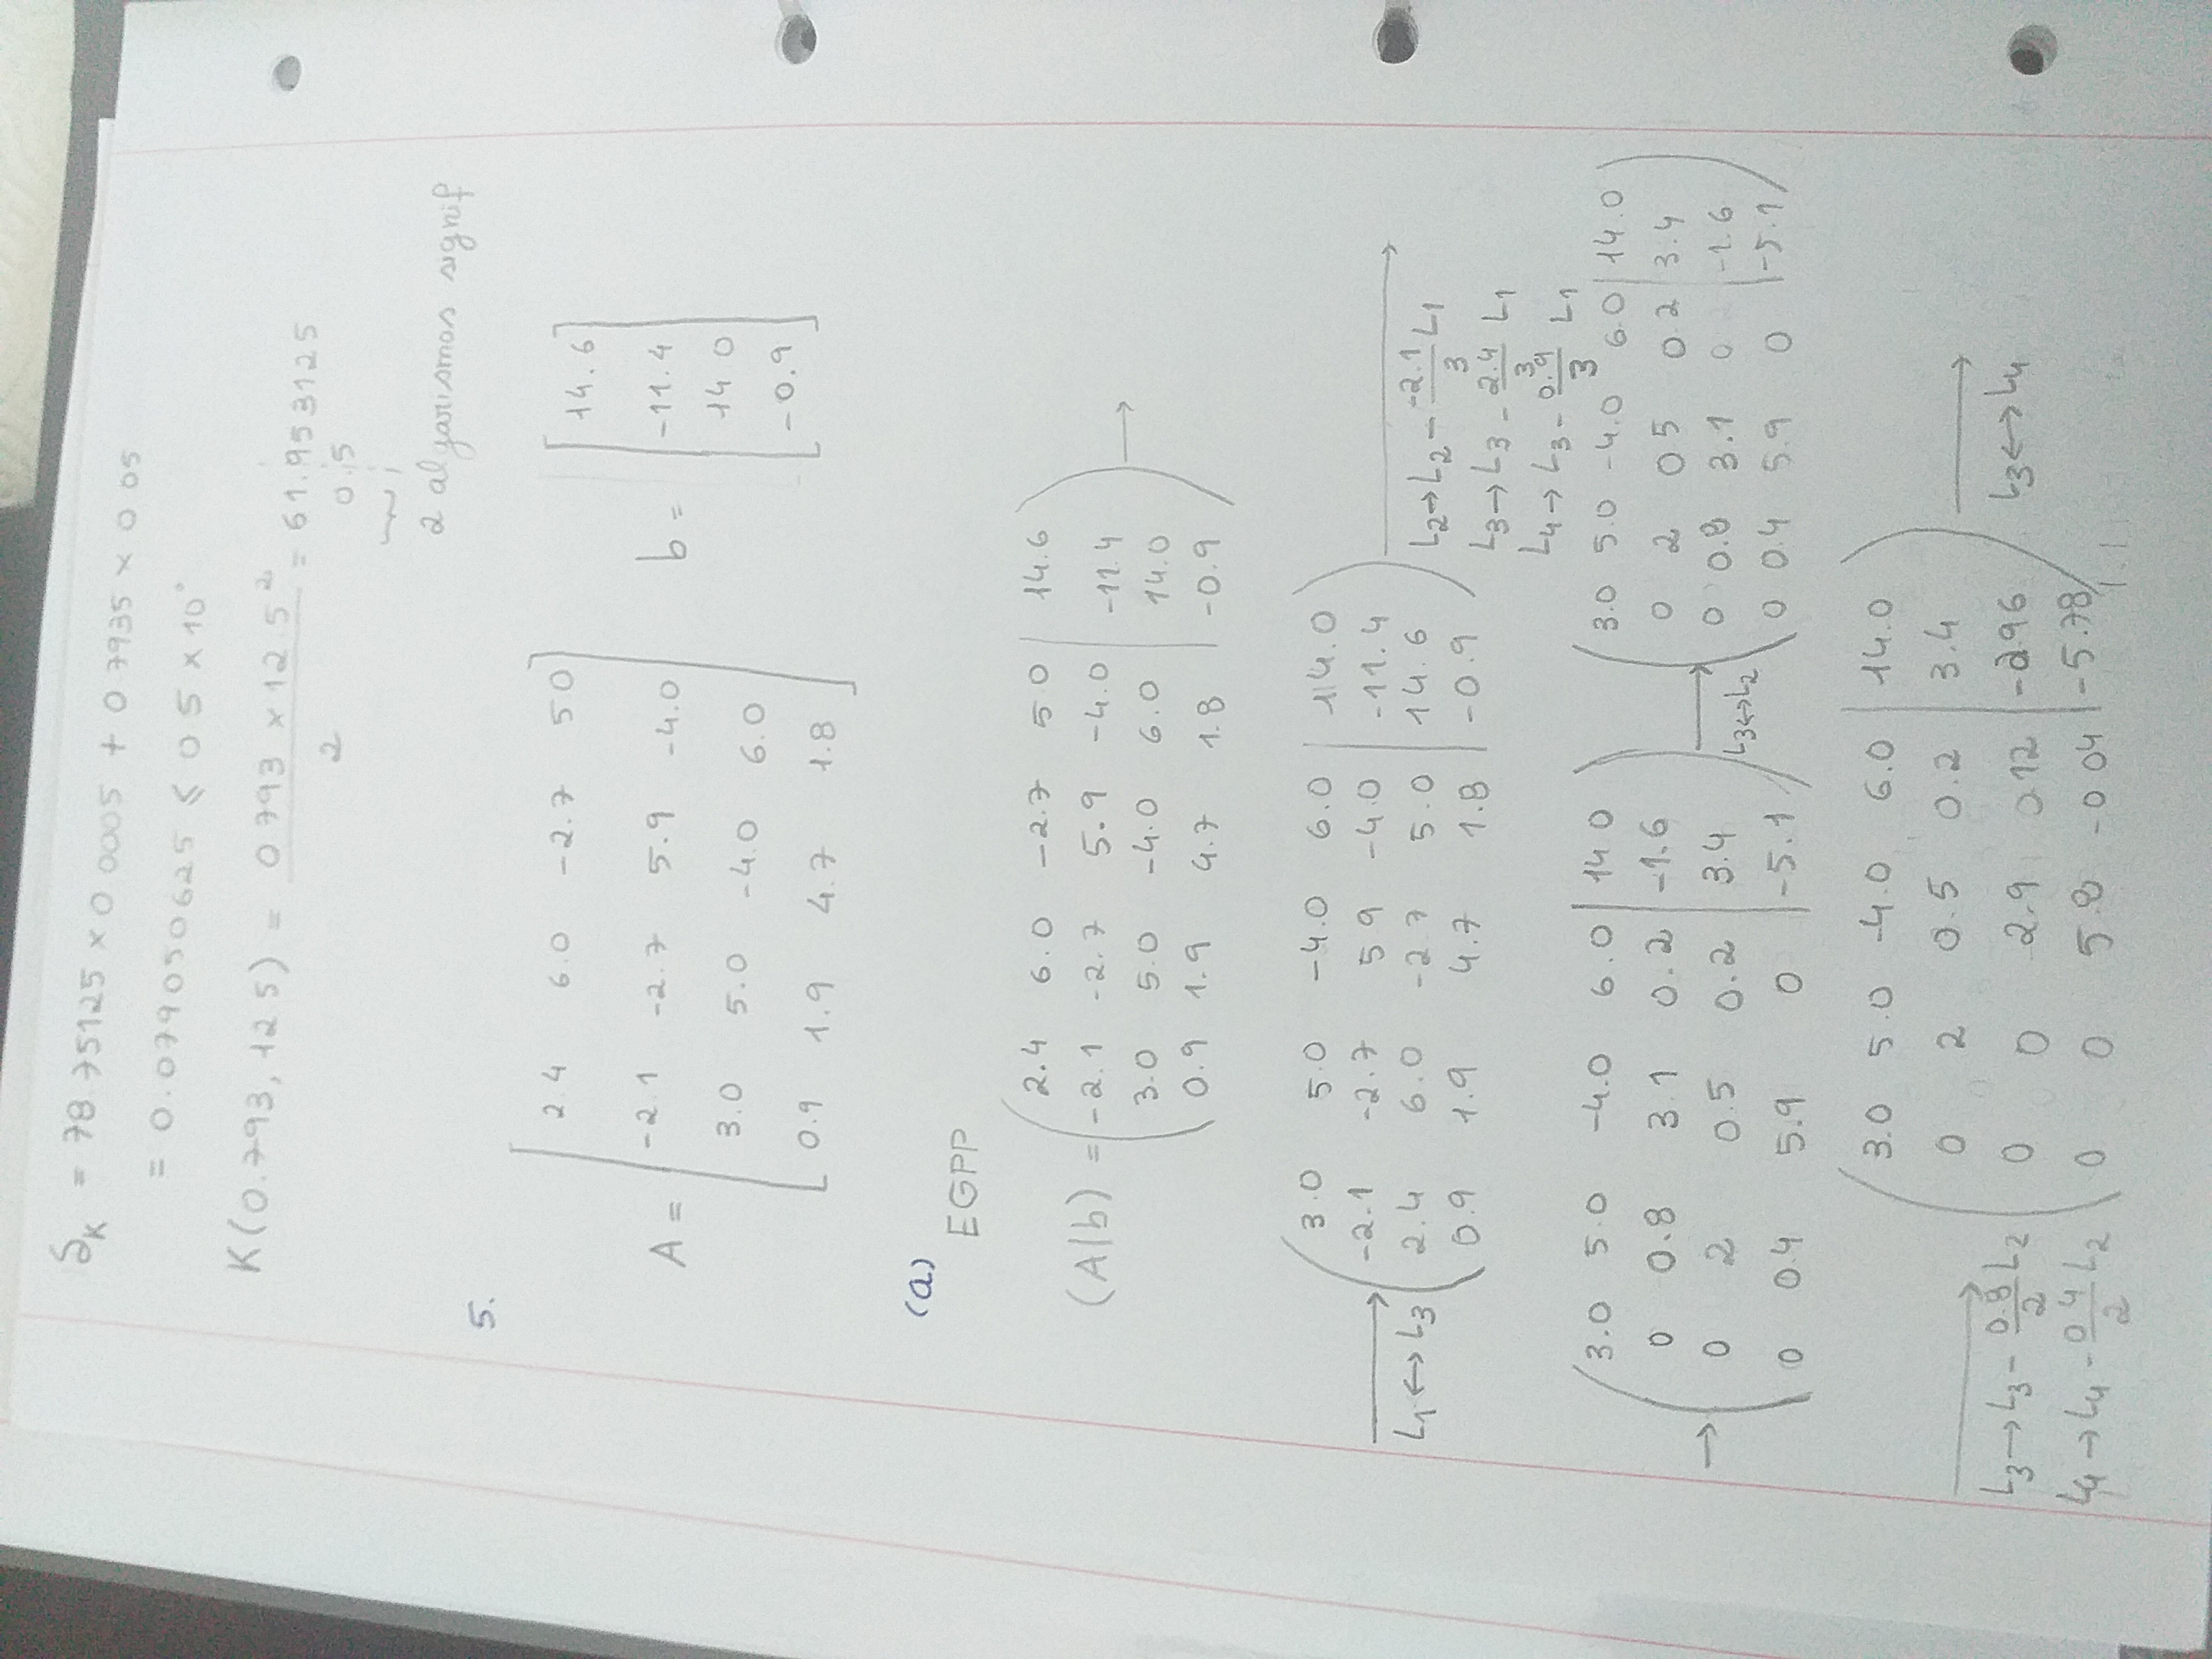 δK = 78.75125 × 0.0005 + 0.7935 × 0.05
= 0.079050625 ≤ 0.5 × 10°
K(0.793, 12.5) = 0.793 × 12.5² / 2 = 61.953125
0.5
2 algarismos signif
5.
A = [ 2.4 6.0 -2.7 5.0
-2.1 -2.7 5.9 -4.0
3.0 5.0 -4.0 6.0
0.9 1.9 4.7 1.8 ]
b = [ 14.6
-11.4
14.0
-0.9 ]
(a)
EGPP
(A|b) = ( 2.4 6.0 -2.7 5.0 | 14.6
-2.1 -2.7 5.9 -4.0 | -11.4
3.0 5.0 -4.0 6.0 | 14.0
0.9 1.9 4.7 1.8 | -0.9 ) →
→ L1 ↔ L3
( 3.0 5.0 -4.0 6.0 | 14.0
-2.1 -2.7 5.9 -4.0 | -11.4
2.4 6.0 -2.7 5.0 | 14.6
0.9 1.9 4.7 1.8 | -0.9 ) →
L2 → L2 - -2.1/3 L1
L3 → L3 - 2.4/3 L1
L4 → L3 - 0.9/3 L1
→ ( 3.0 5.0 -4.0 6.0 | 14.0
0 0.8 3.1 0.2 | -1.6
0 2 0.5 0.2 | 3.4
0 0.4 5.9 0 | -5.1 )
→ L3 ↔ L2
( 3.0 5.0 -4.0 6.0 | 14.0
0 2 0.5 0.2 | 3.4
0 0.8 3.1 0 2 | -1.6
0 0.4 5.9 0 | -5.1 )
→
L3 → L3 - 0.8/2 L2
L4 → L4 - 0.4/2 L2
( 3.0 5.0 -4.0 6.0 | 14.0
0 2 0.5 0.2 | 3.4
0 0 2.9 0.12 | -2.96
0 0 5.8 -0.04 | -5.78 )
→ L3 ↔ L4